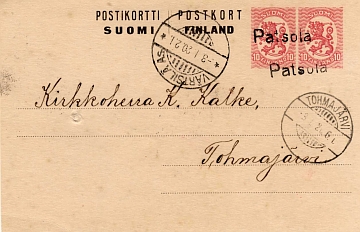 POSTIKORTTI / POSTKORT
SUOMI FINLAND
Patsola
Patsola
10 10 10 10
VÄRTSILÄ AS.
TOHMAJÄRVI
Kirkkoherra K. Kalke,
Tohmajärvi